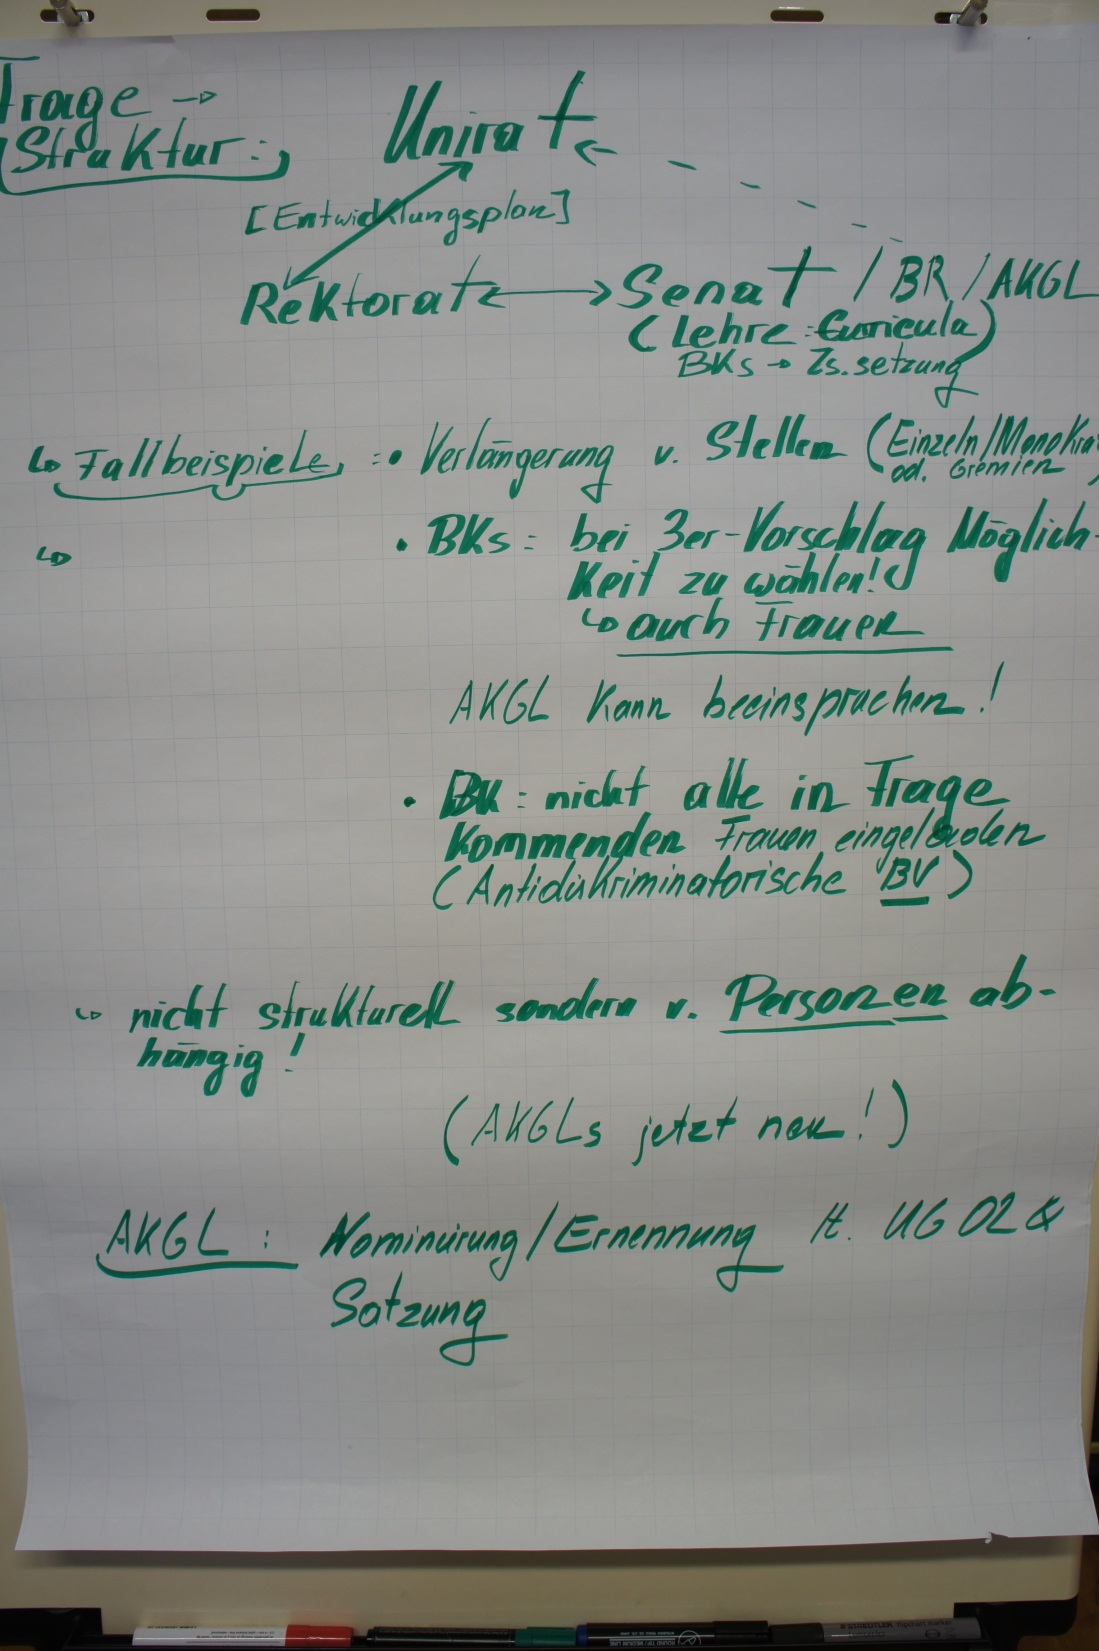 Frage →
Struktur:
Unirat
[Entwicklungsplan]
Rektorat ↔ Senat / BR / AKGL
(Lehre: Curricula)
BKs → Zs.setzung
↳ Fallbeispiele: • Verlängerung v. Stellen (Einzeln/Monokra
od. Gremien)
↳ • BKs: bei 3er-Vorschlag Möglich-
keit zu wählen!
↳ auch Frauen
AKGL kann beeinspruchen!
• BK: nicht alle in Frage
kommenden Frauen eingeladen
(Antidiskriminatorische BV)
↳ nicht strukturell sondern v. Personen ab-
hängig!
(AKGLs jetzt neu!)
AKGL: Nominierung/Ernennung lt. UG 02 &
Satzung